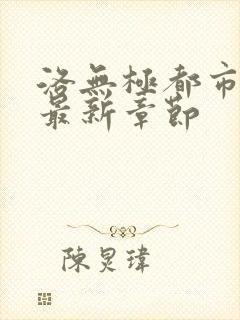 洛無極都市
最新章節
陳炅瑋